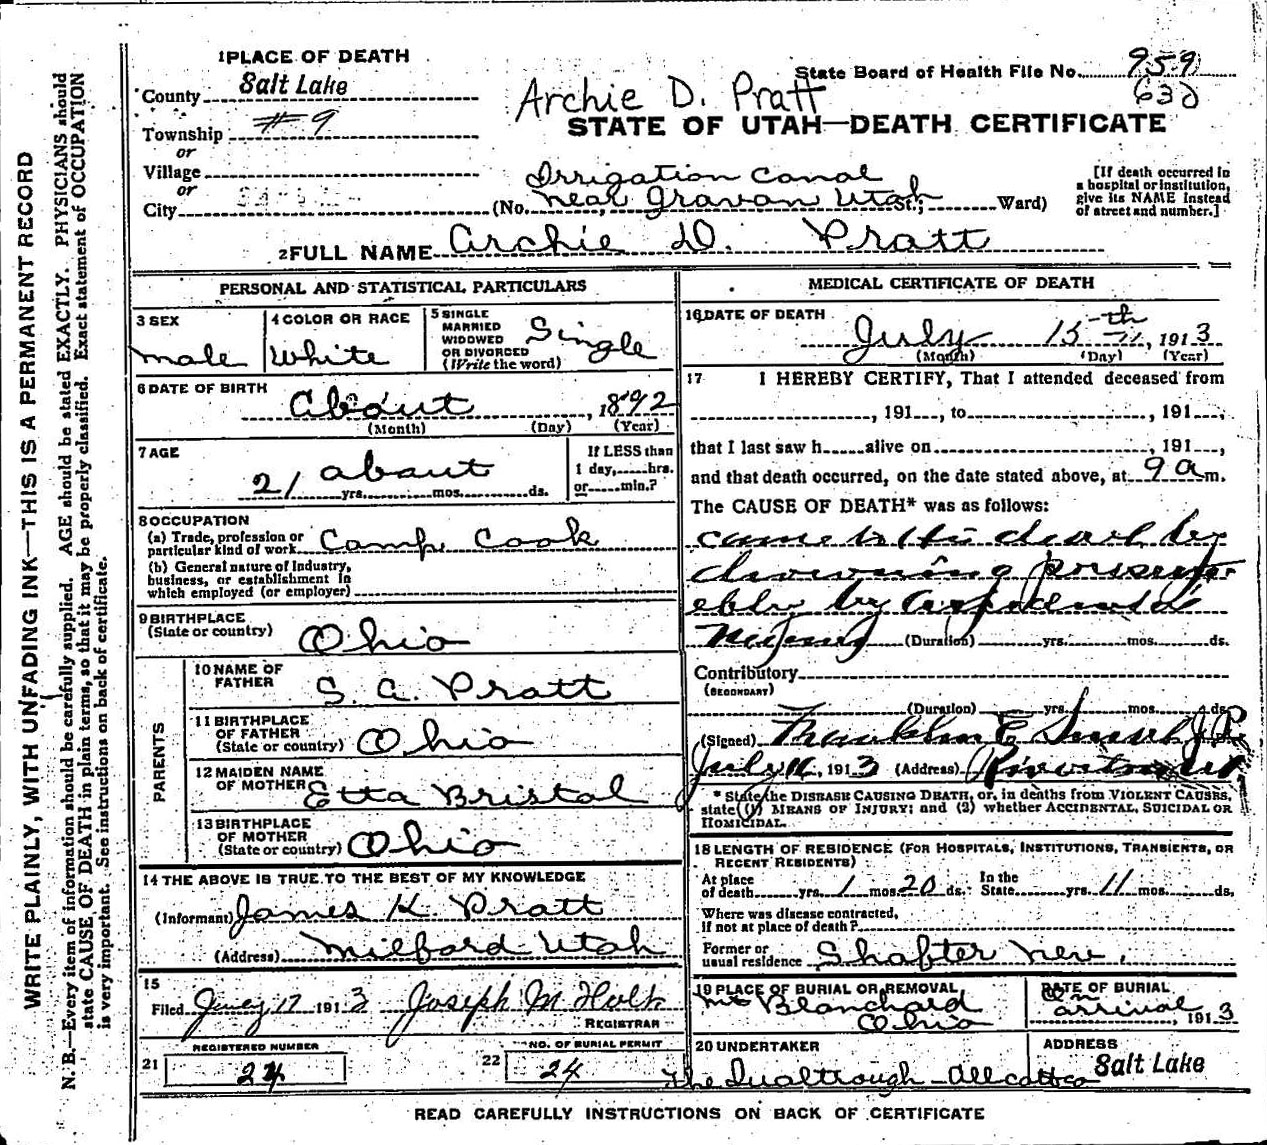 WRITE PLAINLY, WITH UNFADING INK—THIS IS A PERMANENT RECORD
N. B.—Every item of information should be carefully supplied. AGE should be stated EXACTLY. PHYSICIANS should
state CAUSE OF DEATH in plain terms, so that it may be properly classified. Exact statement of OCCUPATION
is very important. See instructions on back of certificate.
1 PLACE OF DEATH
County Salt Lake
Township #9
or
Village
or
City
State Board of Health File No. 959
630
Archie D. Pratt
STATE OF UTAH—DEATH CERTIFICATE
Irrigation Canal
(No. near Utah St.; Ward)
[If death occurred in
a hospital or institution,
give its NAME instead
of street and number.]
2 FULL NAME Archie D. Pratt
PERSONAL AND STATISTICAL PARTICULARS
3 SEX
male
4 COLOR OR RACE
White
5 SINGLE
MARRIED
WIDOWED
OR DIVORCED
(Write the word)
Single
6 DATE OF BIRTH
About, 1892
(Month) (Day) (Year)
7 AGE
21 about
yrs. mos. ds.
If LESS than
1 day, hrs.
or min.?
8 OCCUPATION
(a) Trade, profession or
particular kind of work Camp Cook
(b) General nature of Industry,
business, or establishment in
which employed (or employer)
9 BIRTHPLACE
(State or country) Ohio
PARENTS
10 NAME OF
FATHER S. A. Pratt
11 BIRTHPLACE
OF FATHER
(State or country) Ohio
12 MAIDEN NAME
OF MOTHER Etta Bristol
13 BIRTHPLACE
OF MOTHER
(State or country) Ohio
14 THE ABOVE IS TRUE TO THE BEST OF MY KNOWLEDGE
(Informant) James K Pratt
(Address) Milford Utah
15
Filed 17 1913 Joseph M Holt
REGISTRAR
21 REGISTERED NUMBER
24
22 NO. OF BURIAL PERMIT
24
MEDICAL CERTIFICATE OF DEATH
16 DATE OF DEATH
July 15th, 1913
(Month) (Day) (Year)
17 I HEREBY CERTIFY, That I attended deceased from
, 191 , to , 191 ,
that I last saw h alive on , 191 ,
and that death occurred, on the date stated above, at 9 a m.
The CAUSE OF DEATH* was as follows:
came to his death by
drowning
by
(Duration) yrs. mos. ds.
Contributory
(SECONDARY)
(Duration) yrs. mos. ds.
(Signed) Franklin E J.P.
July 16, 1913 (Address)
* State the DISEASE CAUSING DEATH, or, in deaths from VIOLENT CAUSES,
state (1) MEANS OF INJURY; and (2) whether ACCIDENTAL, SUICIDAL OR
HOMICIDAL.
18 LENGTH OF RESIDENCE (FOR HOSPITALS, INSTITUTIONS, TRANSIENTS, OR
RECENT RESIDENTS)
At place
of death yrs. 1 mos. 20 ds.
In the
State yrs. 11 mos. ds.
Where was disease contracted,
If not at place of death?
Former or
usual residence Shafter Nev.
19 PLACE OF BURIAL OR REMOVAL
Mt Blanchard
Ohio
DATE OF BURIAL
On
arrival, 1913
20 UNDERTAKER
The
ADDRESS
Salt Lake
READ CAREFULLY INSTRUCTIONS ON BACK OF CERTIFICATE